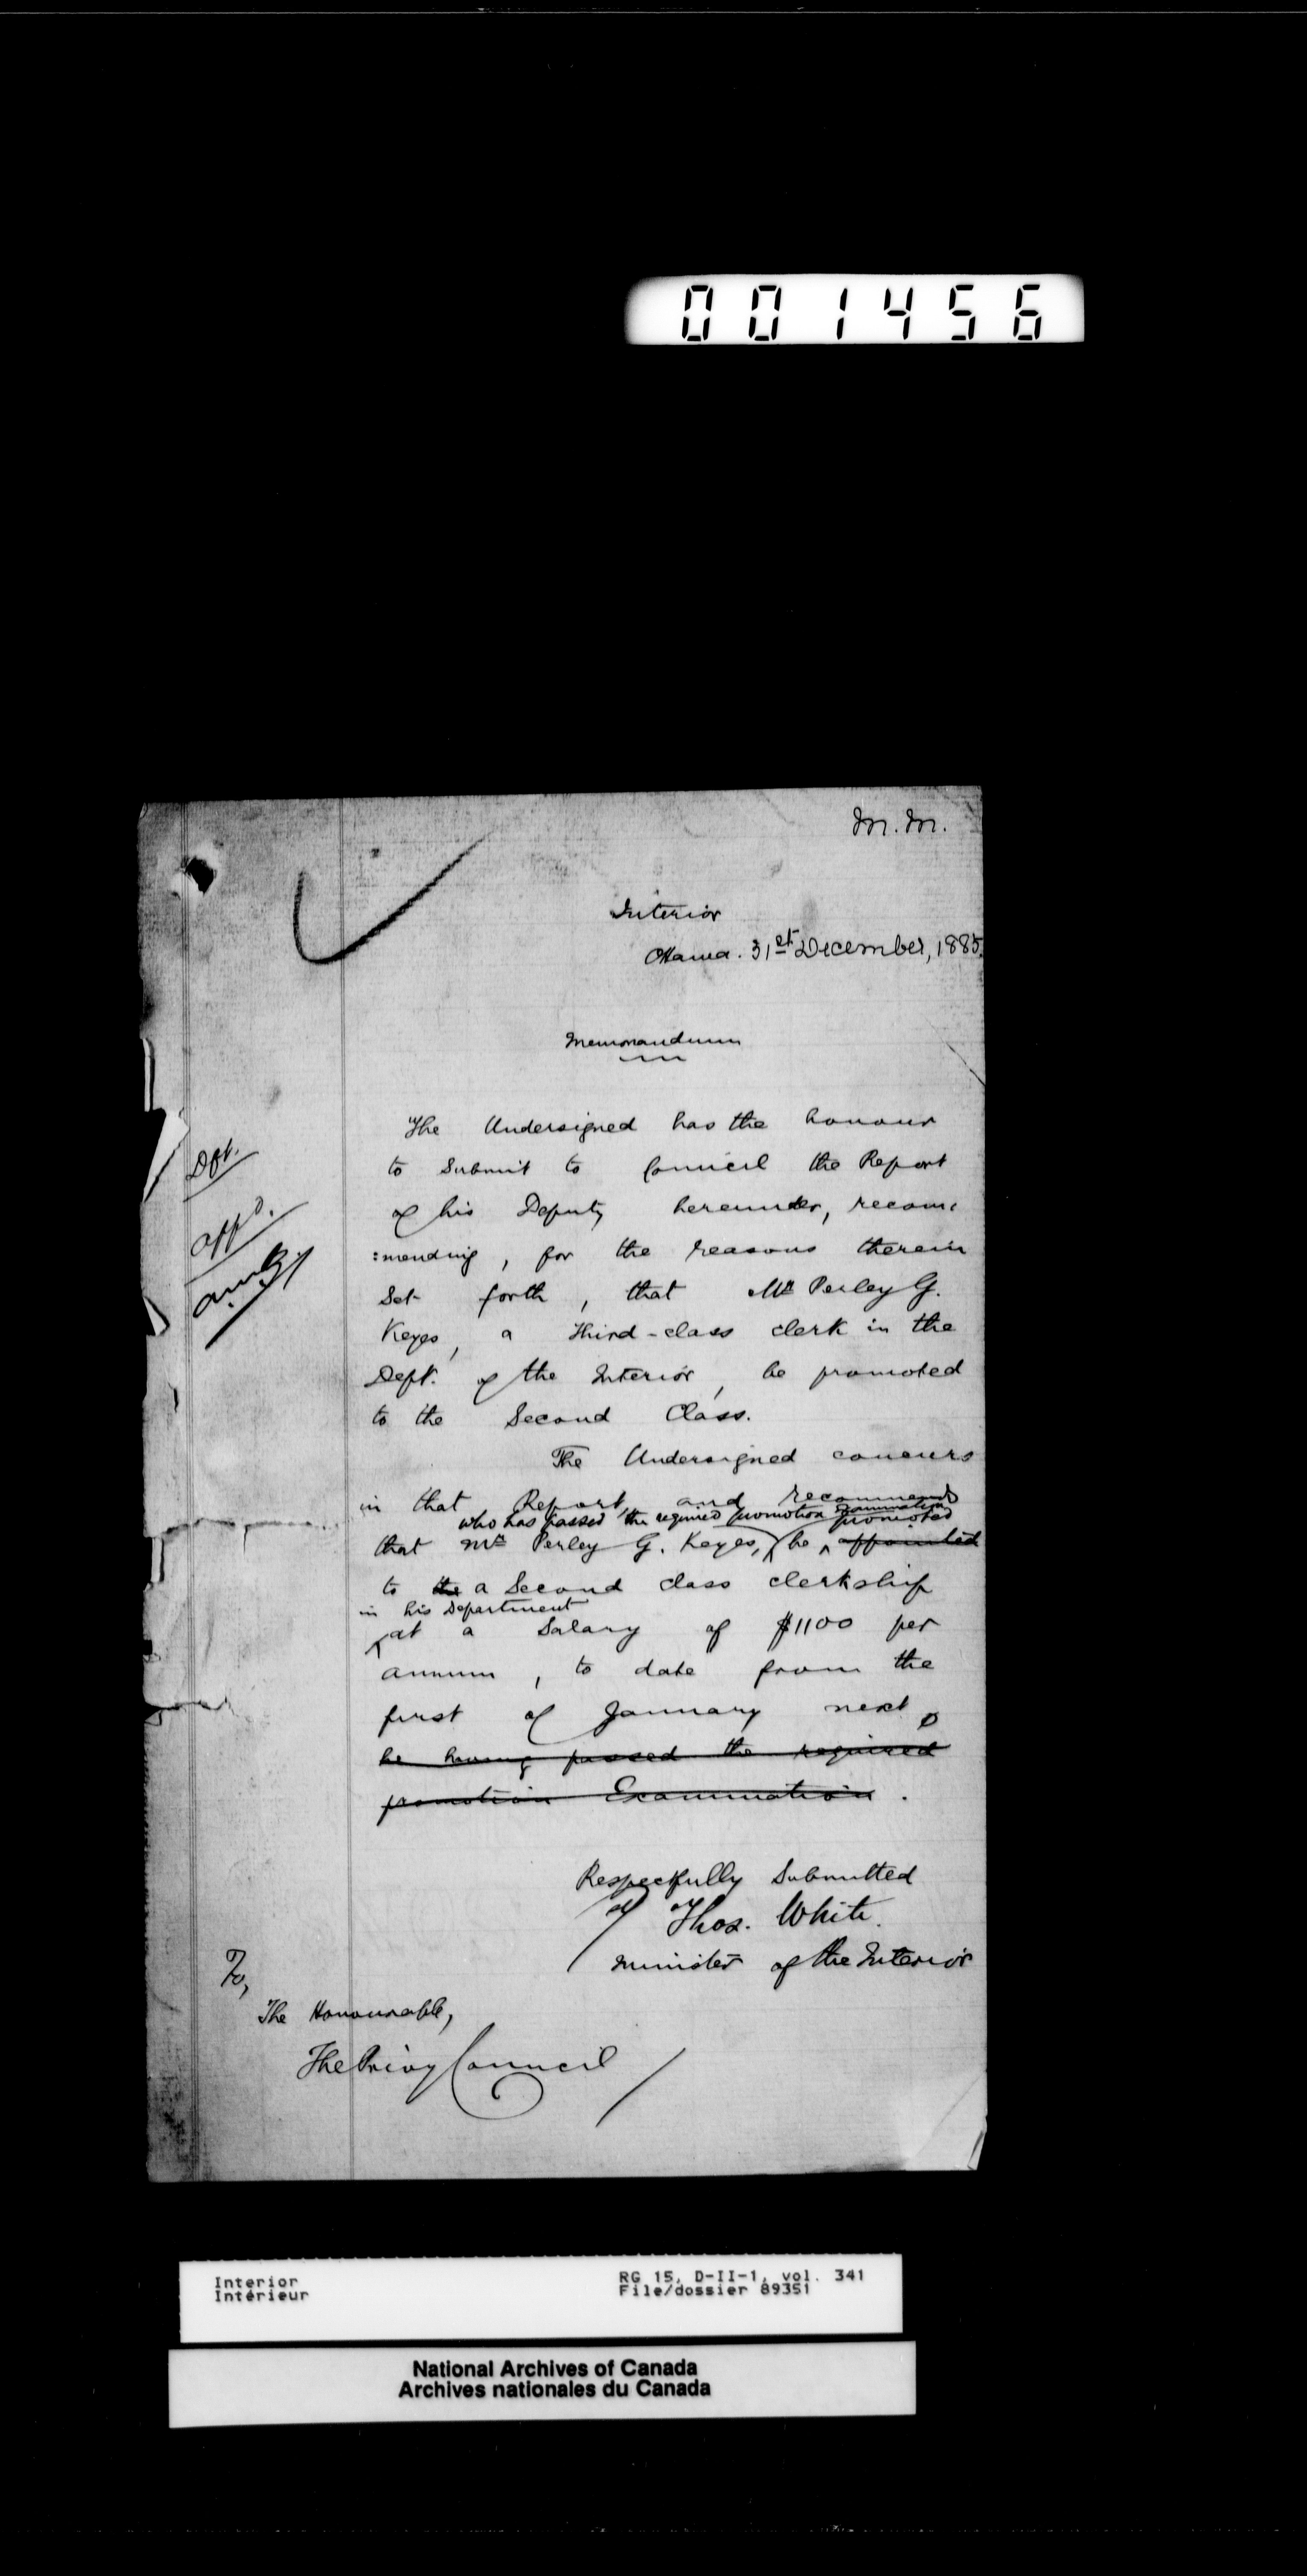 001456
M.M.
Interior
Ottawa. 31st December, 1885.
Memorandum
The Undersigned has the honour
to submit to Council the Report
of his Deputy hereunder, recom:
:mending, for the reasons therein
set forth, that Mr Perley G.
Keyes, a Third-class clerk in the
Dept. of the Interior, be promoted
to the Second Class.
The Undersigned concurs
in that Report, and recommends
who has passed the required promotion examination
promoted
that Mr Perley G. Keyes, be appointed
to the a Second class clerkship
in his Department
at a Salary of $1100 per
annum, to date from the
first of January next
he having passed the required
promotion Examination.
Respectfully Submitted
Thos. White.
Minister of the Interior
To,
The Honourable,
The Privy Council
Dpt.
appd.
Interior
Intérieur
RG 15, D-II-1, vol. 341
File/dossier 89351
National Archives of Canada
Archives nationales du Canada